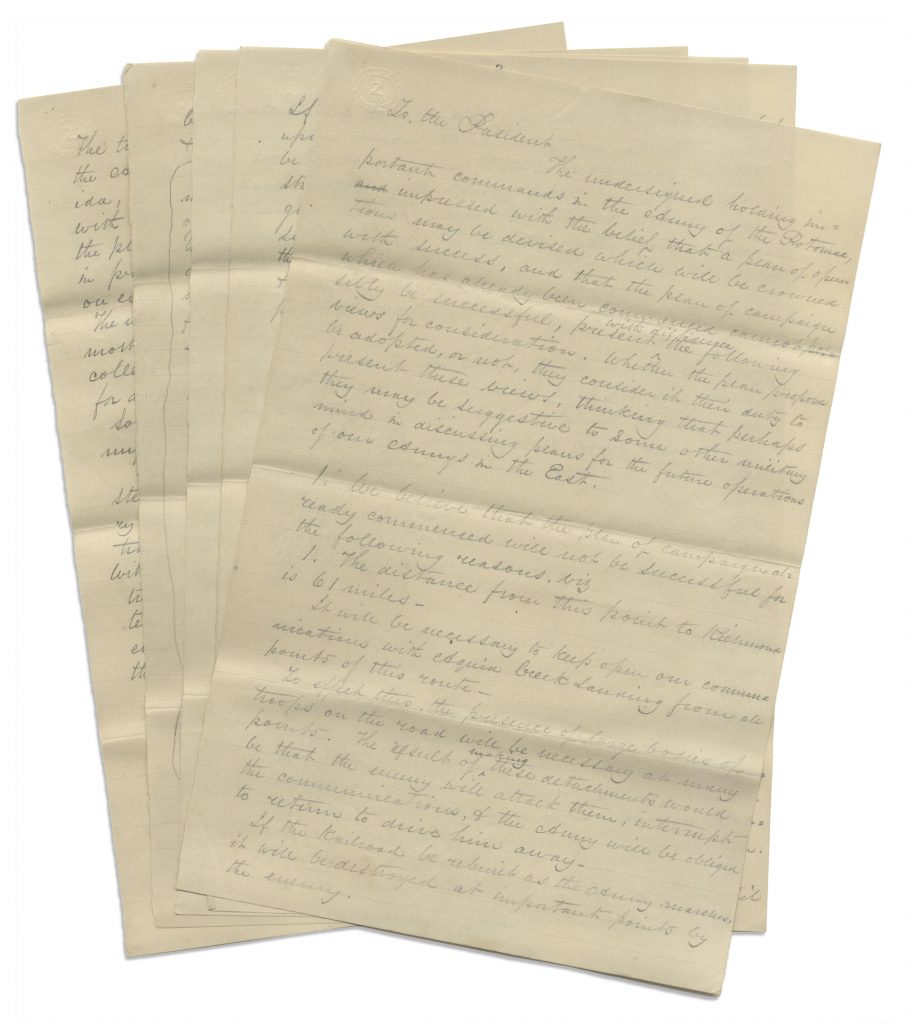 To the President
The undersigned holding im-
portant commands in the Army of the Potomac,
and impressed with the belief that a plan of opera
tions may be devised which will be crowned
with success, and that the plan of campaign
which has already been commenced cannot pos
sibly be successful, present with diffidence the following
views for consideration. Whether the plan proposed
be adopted, or not, they consider it their duty to
present these views, thinking that perhaps
they may be suggestive to some other military
mind in discussing plans for the future operations
of our Armys in the East.
1. We believe that the plan of campaign al
ready commenced will not be successful for
the following reasons, viz
1. The distance from this point to Richmond
is 61 miles-
It will be necessary to keep open our commu-
nications with Aquia Creek Landing from all
points of this route-
To effect this, the presence of large bodies of
troops on the road will be necessary at many
points. The result of making these detachments would
be that the enemy will attack them, interrupt
the communications, & the Army will be obliged
to return to drive him away-
If the Railroad be rebuilt as the Army marches,
it will be destroyed at important points by
the enemy.
The t
the
ida,
with
the p
in p
on e
The
mo
colle
for a
So
mu
ste
ry
tr
wit
tr
te
e
th
If
up
be
str
g
s
th